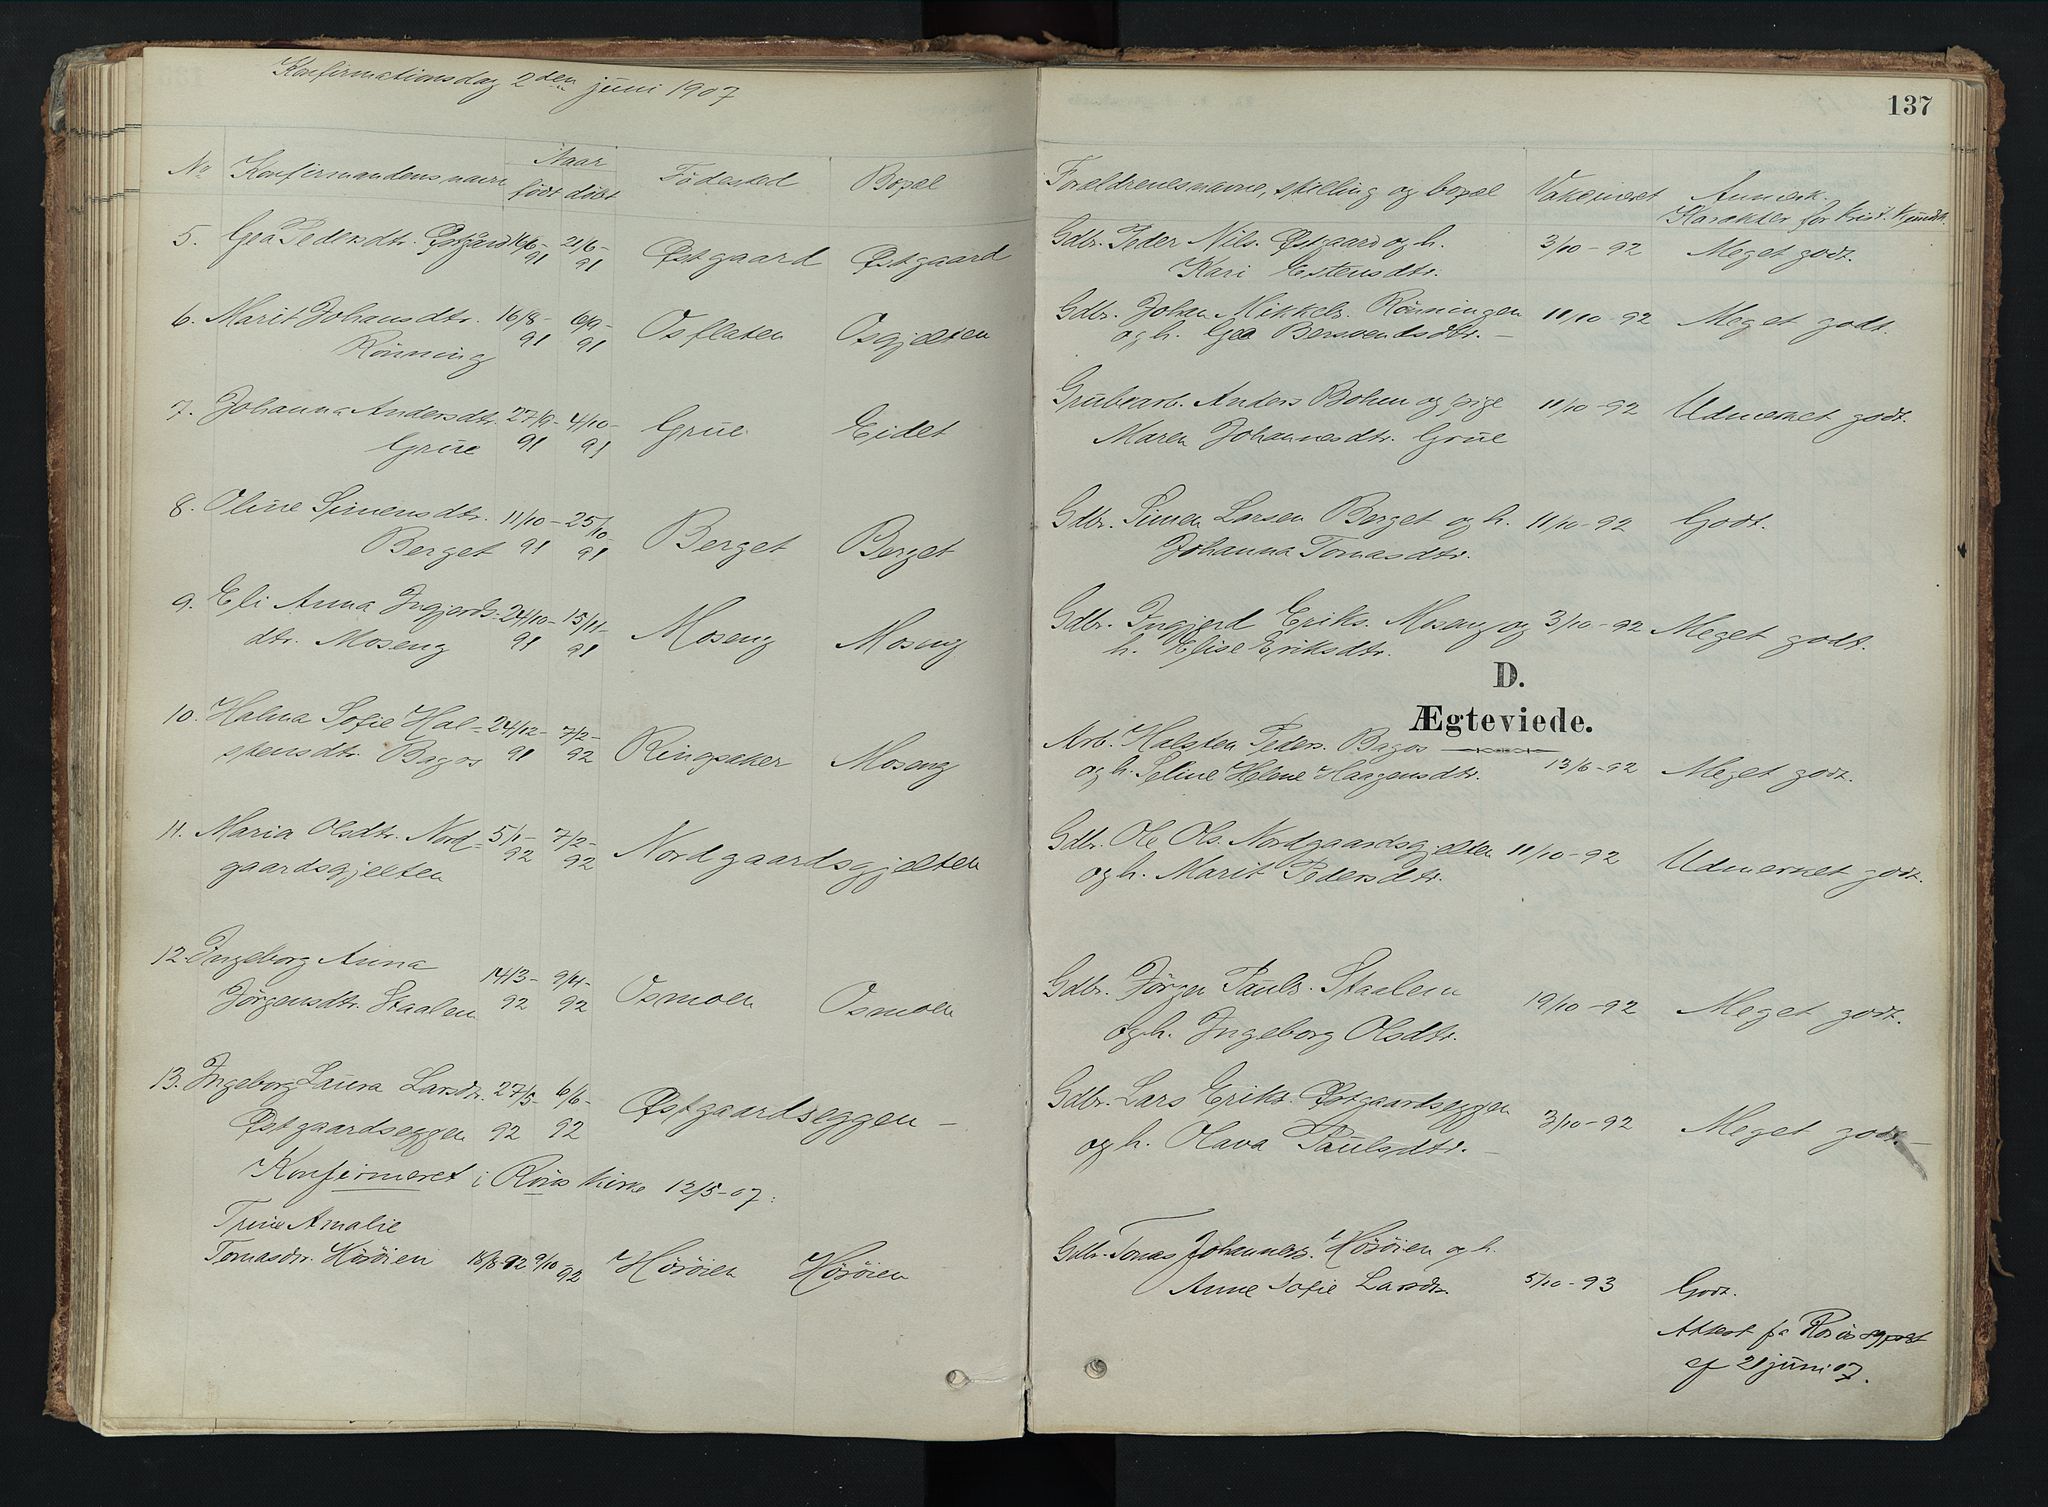 Konfirmationsdag 2den juni 1907
137
No Konfirmandens navn Naar født døbt Fødested Bopæl Forældrenes navne, stilling og bopæl Vakcineret Anmærk.
Karakter for krist. kundsk.
5. Gea Pedersdtr. Østgård 16/6- 21/6- Østgaard Østgaard Gdbr. Peder Nils. Østgaard og h. 3/10-92 Meget godt.
91 91 Kari Estensdtr.
6. Marit Johansdtr. 16/8- 6/9- Osflaten Osgjelten Gdbr. Johan Mikkels. Rønningen 11/10-92 Meget godt.
Rønning 91 91 og h. Gea Bersvendsdtr.-
7. Johanna Andersdtr. 27/9- 4/10- Grue Eidet Grubearb. Anders Bohen og pige 11/10-92 Udmerket godt.
Grue 91 91 Maren Johannesdtr. Grue
8. Oline Simensdtr. 11/10- 25/10- Berget Berget Gdbr. Simen Larsen Berget og h. 11/10-92 Godt.
Berget 91 91 Johanna Tomasdtr.
9. Eli Anna Ingjerds- 24/10- 15/11- Moseng Mosng Gdbr. Ingjerd Eriks. Moseng og 3/10-92 Meget godt.
dtr. Moseng 91 91 h. Elise Eriksdtr.
D.
Ægteviede.
10. Halma Sofie Hal= 24/12- 7/2- Ringsaker Moseng Arb. Halsten Peders. Bagos
stensdtr. Bagos 91 92 og h. Seline Helene Haagensdtr. 13/6-92 Meget godt.
11. Maria Olsdtr. Nord= 5/1- 7/2- Nordgaardsgjelten Gdbr. Ole Ols. Nordgaardsgjelten 11/10-92 Udmerket godt.
gaardsgjelten 92 92 og h. Marit Pedersdtr.
12. Ingeborg Anna 14/3- 9/4- Osmoen Osmoen Gdbr. Jørgen Pauls. Staalen 19/10-92 Meget godt.
Jørgensdtr. Staalen 92 92 og h. Ingeborg Olsdtr.
13. Ingeborg Laura Larsdtr. 27/5- 6/6- Østgaardseggen - Gdbr. Lars Eriks. Østgaardseggen 3/10-92 Meget godt.
Østgaardseggen 92 92 og h. Olava Paulsdtr. -
Konfirmeret i Røros kirke 12/5-07:
Trine Amalie
Tomasdtr. Høsøien 18/8-92 9/10 92 Høsøien Høsøien Gdbr. Tomas Johannes. Høsøien og h.
Anne Sofie Larsdtr. 5/10-93 Godt.
Attest fra Røros
af 21 juni 07.